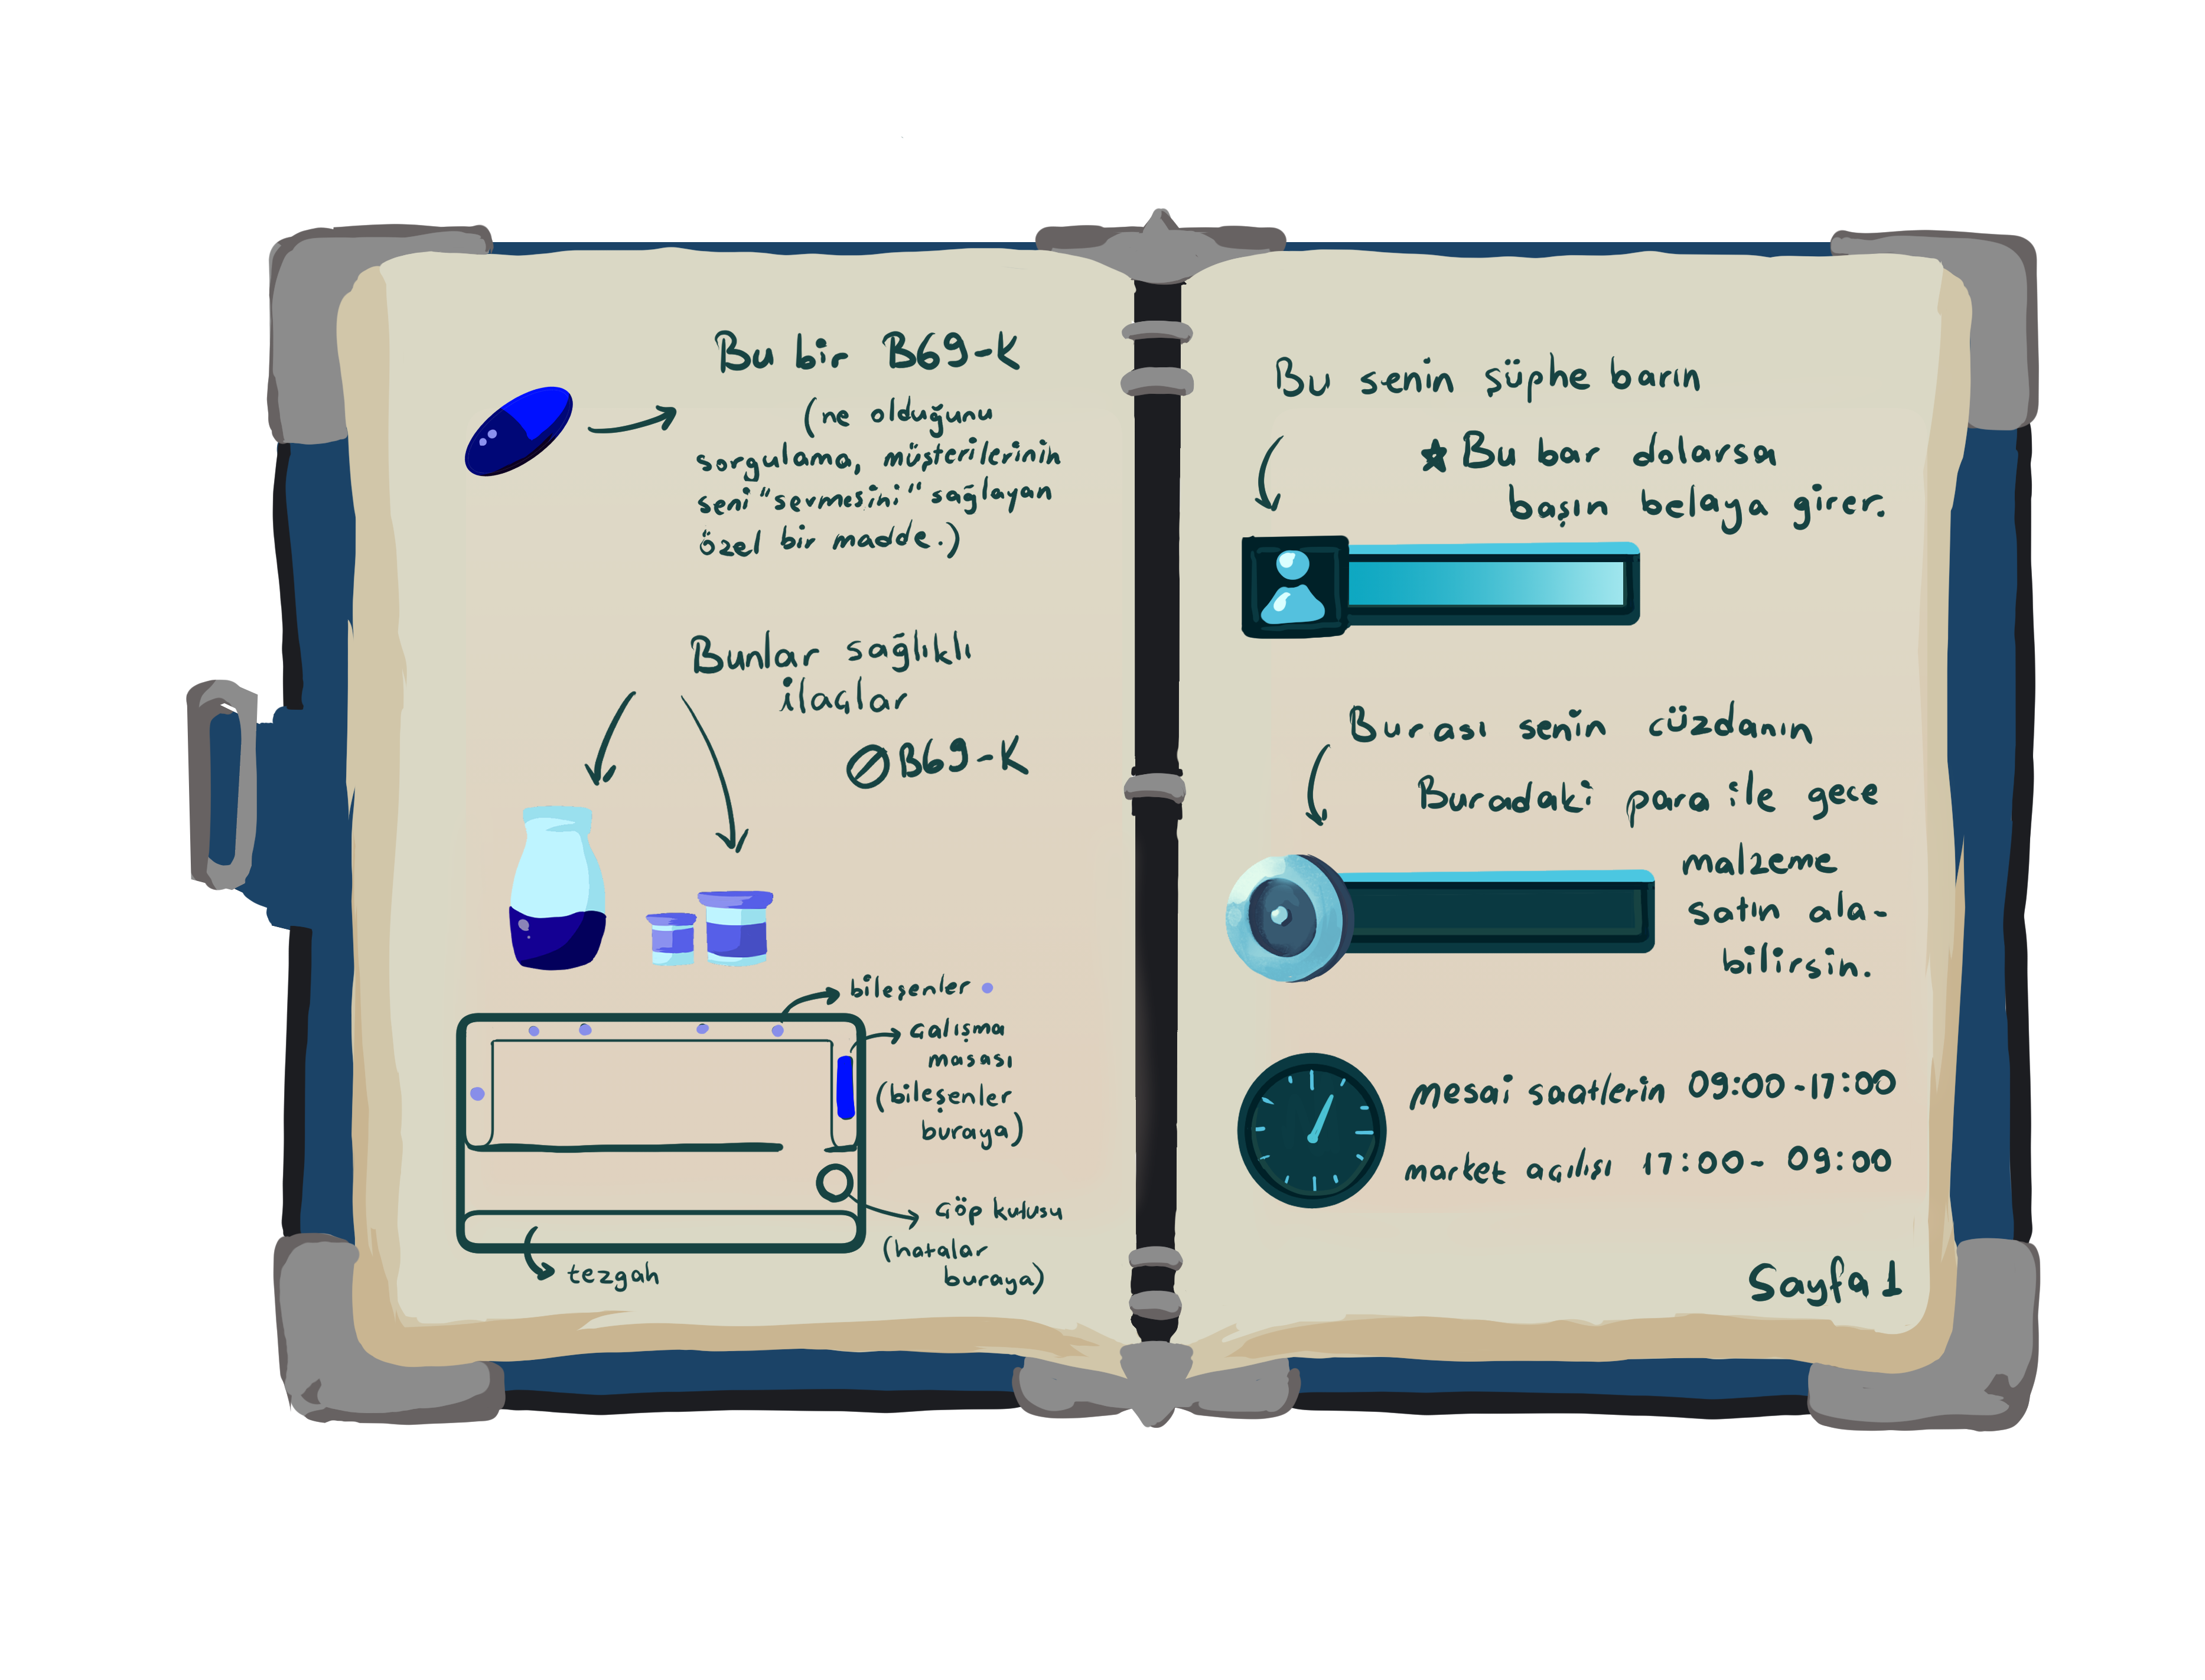 Bu bir B69-K
(ne olduğunu
sorgulama, müşterilerinin
seni "sevmesini" sağlayan
özel bir madde.)
Bunlar sağlıklı
ilaçlar
B69-K
bileşenler
çalışma
masası
(bileşenler
buraya)
çöp kutusu
(hatalar
buraya)
tezgah
Bu senin şüphe barın
★ Bu bar dolarsa
başın belaya girer.
Burası senin cüzdanın
Buradaki para ile gece
malzeme
satın ala-
bilirsin.
mesai saatlerin 09:00-17:00
market açılışı 17:00- 09:00
Sayfa 1